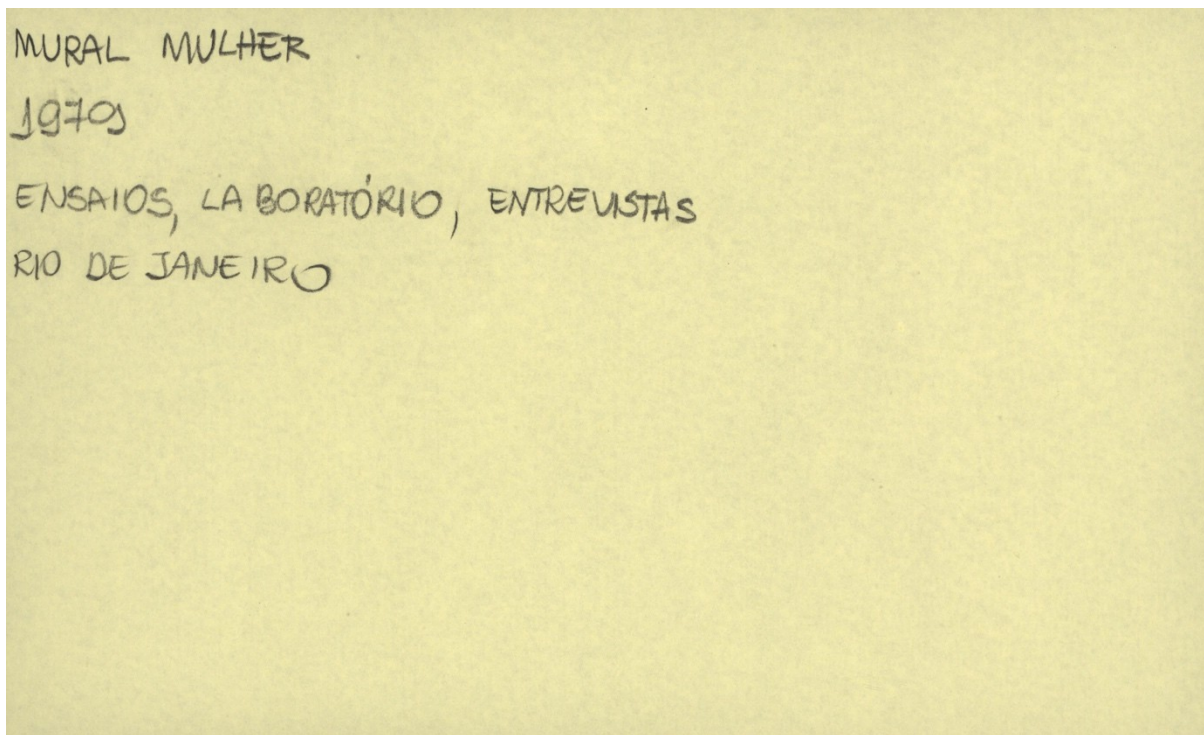 MURAL MULHER
1979
ENSAIOS, LABORATÓRIO, ENTREVISTAS
RIO DE JANEIRO